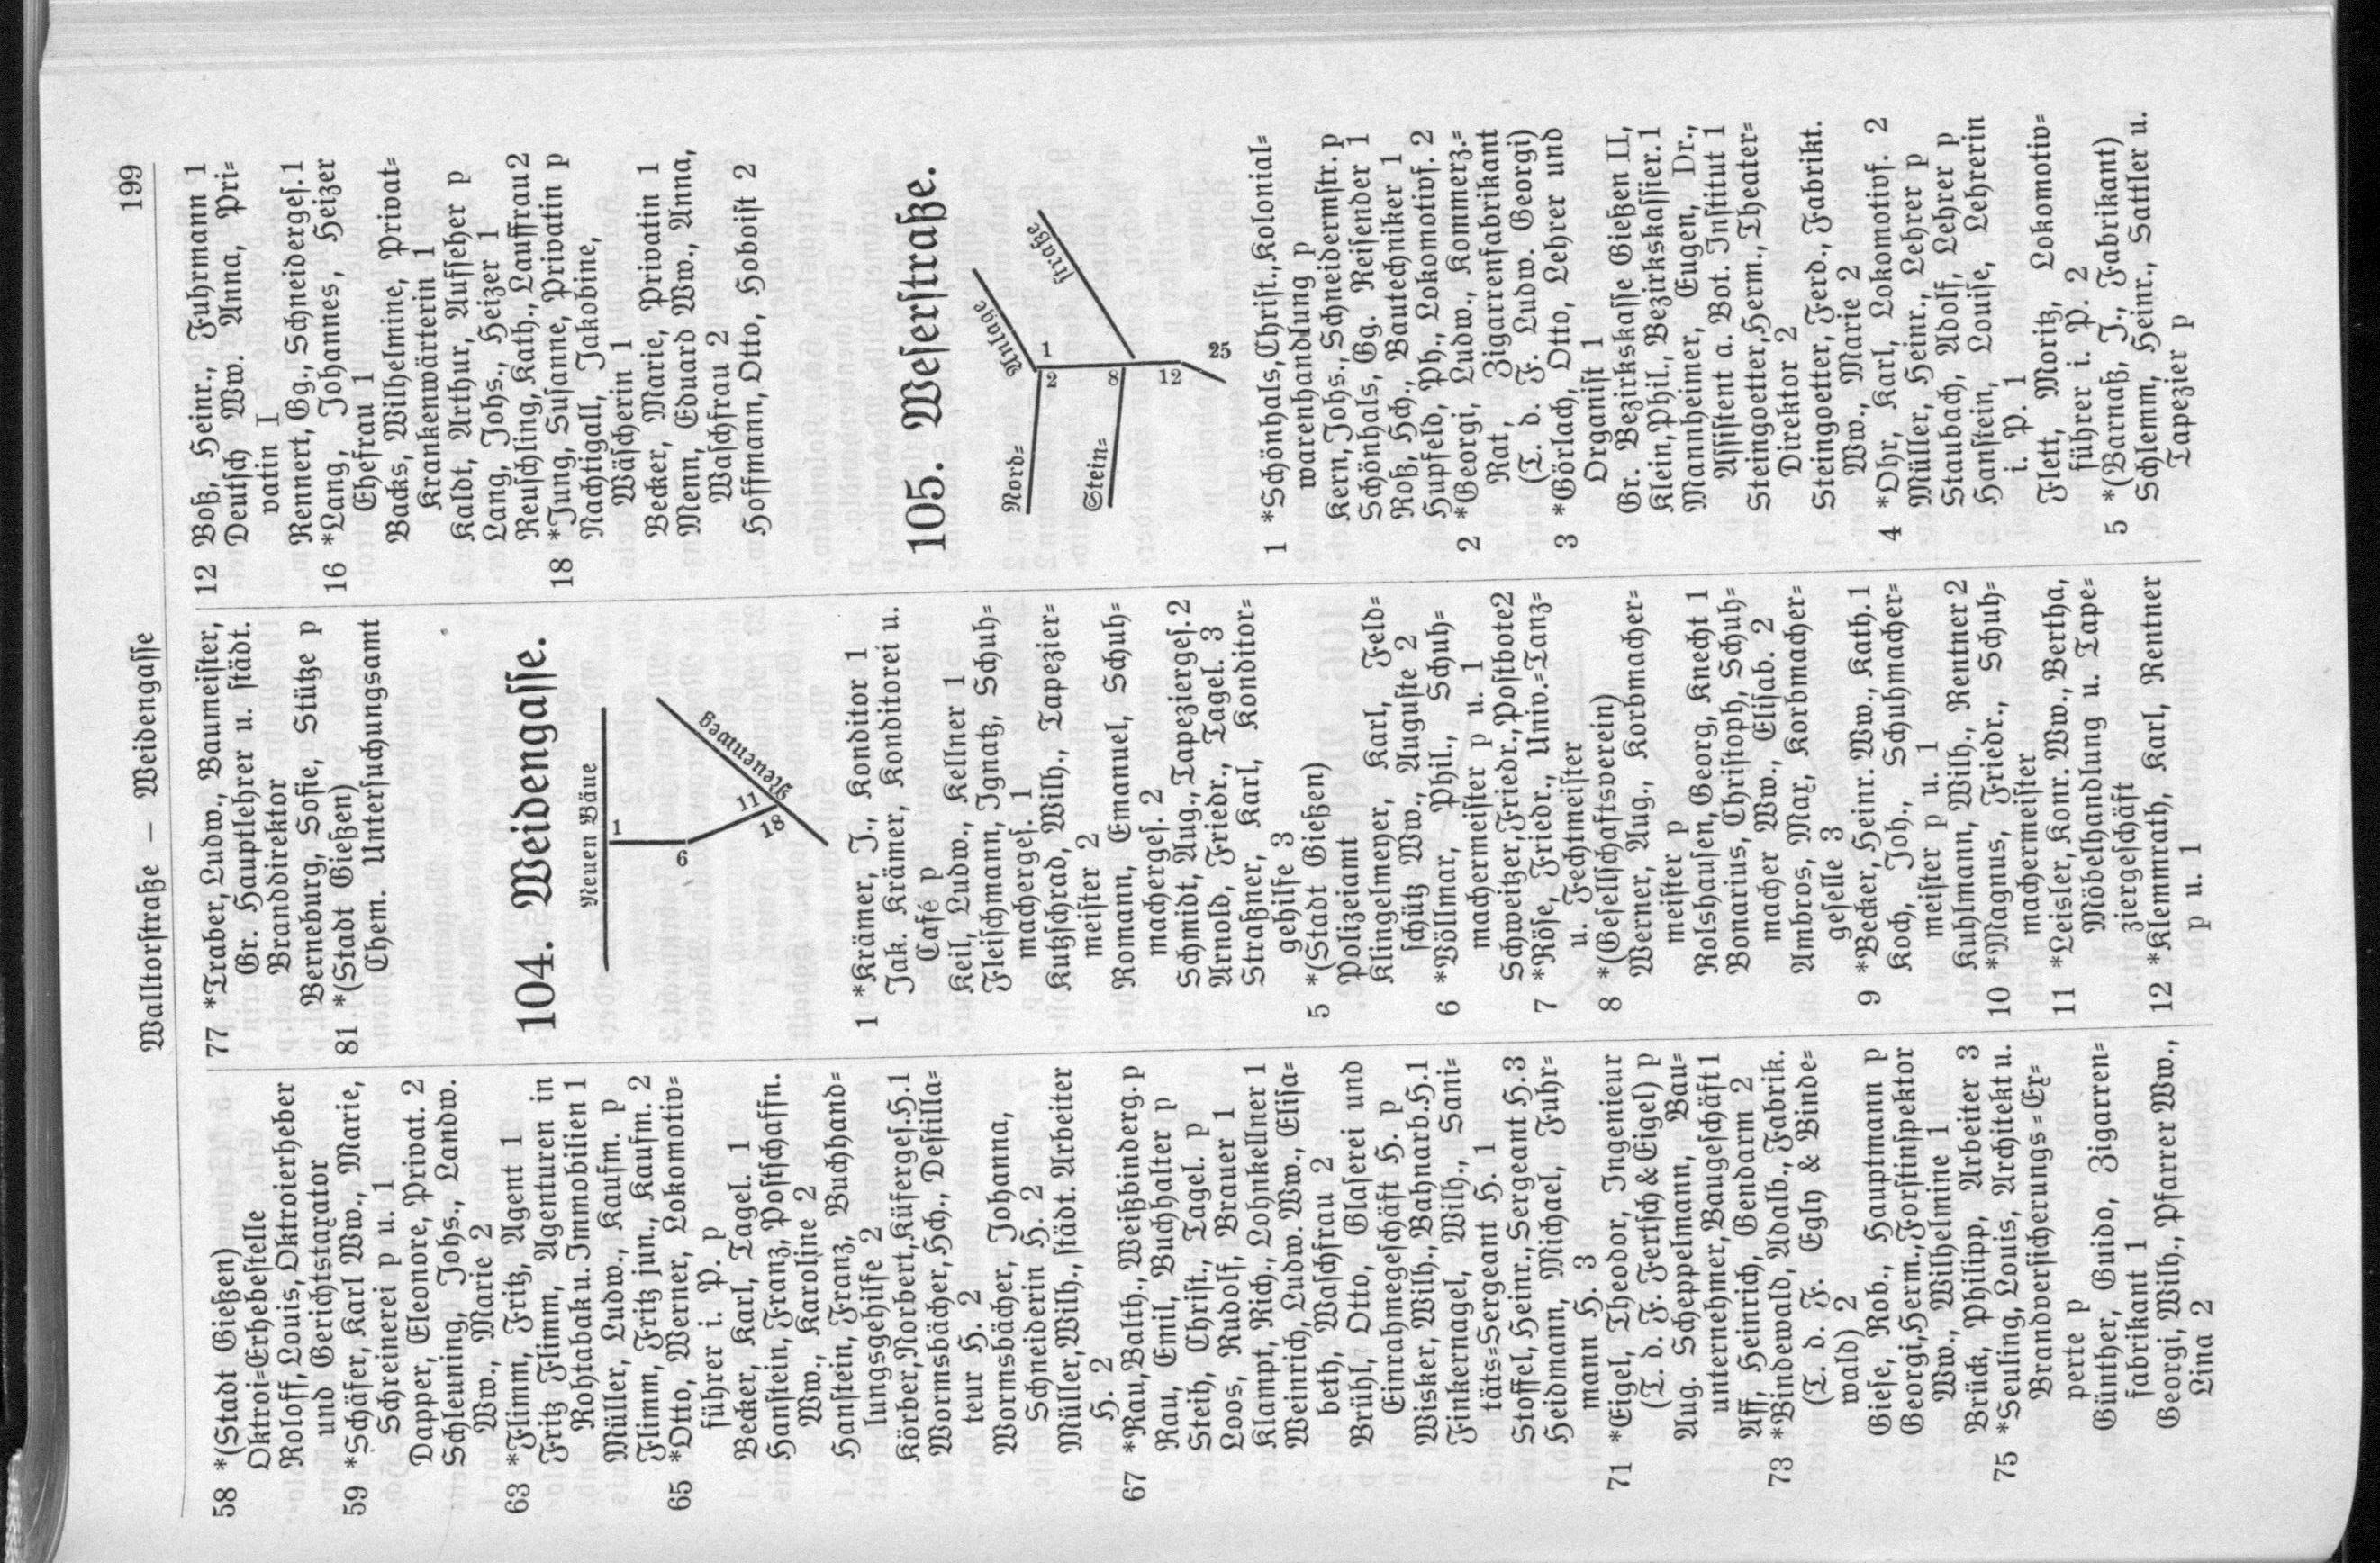 Walltorstraße — Weidengasse 199
58 *(Stadt Gießen)
Oktroi=Erhebestelle
Roloff, Louis, Oktroierheber
und Gerichtstaxator
59 *Schäfer, Karl Ww., Marie,
Schreinerei p u. 1
Dapper, Eleonore, Privat. 2
Schleuning, Johs., Landw.
Ww., Marie 2
63 *Flimm, Fritz, Agent 1
Fritz Flimm, Agenturen in
Rohtabak u. Immobilien 1
Müller, Ludw., Kaufm. p
Flimm, Fritz jun., Kaufm. 2
65 *Otto, Werner, Lokomotiv=
führer i. P. p
Becker, Karl, Tagel. 1
Hanstein, Franz, Postschaffn.
Ww., Karoline 2
Hanstein, Franz, Buchhand=
lungsgehilfe 2
Körber, Norbert, Küferges. H. 1
Wormsbächer, Hch., Destilla=
teur H. 2
Wormsbächer, Johanna,
Schneiderin H. 2
Müller, Wilh., städt. Arbeiter
H. 2
67 *Rau, Balth., Weißbinderg. p
Rau, Emil, Buchhalter p
Steih, Christ., Tagel. p
Loos, Rudolf, Brauer 1
Klampt, Rich., Lohnkellner 1
Weinrich, Ludw. Ww., Elisa=
beth, Waschfrau 2
Brühl, Otto, Glaserei und
Einrahmegeschäft H. p
Wisker, Wilh., Bahnarb. H. 1
Finkernagel, Wilh., Sani=
täts=Sergeant H. 1
Stoffel, Heinr., Sergeant H. 3
Heidmann, Michael, Fuhr=
mann H. 3
71 *Eigel, Theodor, Ingenieur
(T. d. F. Fertsch & Eigel) p
Aug. Scheppelmann, Bau=
unternehmer, Baugeschäft 1
Aff, Heinrich, Gendarm 2
73 *Bindewald, Adalb., Fabrik.
(T. d. F. Egly & Binde=
wald) 2
Giese, Rob., Hauptmann p
Georgi, Herm., Forstinspektor
Ww., Wilhelmine 1
Brück, Philipp, Arbeiter 3
75 *Seuling, Louis, Architekt u.
Brandversicherungs=Ex=
perte p
Günther, Guido, Zigarren=
fabrikant 1
Georgi, Wilh., Pfarrer Ww.,
Lina 2
77 *Traber, Ludw., Baumeister,
Gr. Hauptlehrer u. städt.
Branddirektor
Berneburg, Sofie, Stütze p
81 *(Stadt Gießen)
Chem. Untersuchungsamt
104. Weidengasse.
Neuen Bäue
1
6
11
18
Neuenweg
1 *Krämer, J., Konditor 1
Jak. Krämer, Konditorei u.
Café p
Keil, Ludw., Kellner 1
Fleischmann, Ignatz, Schuh=
macherges. 1
Kutzschrad, Wilh., Tapezier=
meister 2
Romann, Emanuel, Schuh=
macherges. 2
Schmidt, Aug., Tapezierges. 2
Arnold, Friedr., Tagel. 3
Straßner, Karl, Konditor=
gehilfe 3
5 *(Stadt Gießen)
Polizeiamt
Klingelmeyer, Karl, Feld=
schütz Ww., Auguste 2
6 *Völlmar, Phil., Schuh=
machermeister p u. 1
Schweitzer, Friedr., Postbote 2
7 *Röse, Friedr., Univ.=Tanz=
u. Fechtmeister
8 *(Gesellschaftsverein)
Werner, Aug., Korbmacher=
meister p
Rolshausen, Georg, Knecht 1
Bonarius, Christoph, Schuh=
macher Ww., Elisab. 2
Ambros, Max, Korbmacher=
geselle 3
9 *Becker, Heinr. Ww., Kath. 1
Koch, Joh., Schuhmacher=
meister p u. 1
Kuhlmann, Wilh., Rentner 2
10 *Magnus, Friedr., Schuh=
machermeister
11 *Leisler, Konr. Ww., Bertha,
Möbelhandlung u. Tape=
ziergeschäft
12 *Klemmrath, Karl, Rentner
p u. 1
12 Voß, Heinr., Fuhrmann 1
Deutsch Ww. Anna, Pri=
vatin I
Rennert, Gg., Schneiderges. 1
16 *Lang, Johannes, Heizer
Ehefrau 1
Backs, Wilhelmine, Privat=
Krankenwärterin 1
Kaldt, Arthur, Aufseher p
Lang, Johs., Heizer 1
Reuschling, Kath., Lauffrau 2
18 *Jung, Susanne, Privatin p
Nachtigall, Jakobine,
Wäscherin 1
Becker, Marie, Privatin 1
Menn, Eduard Ww., Anna,
Waschfrau 2
Hoffmann, Otto, Hoboist 2
105. Weserstraße.
Nord=
Anlage
1
2
Stein=
straße
8
12
25
1 *Schönhals, Christ., Kolonial=
warenhandlung p
Kern, Johs., Schneidermstr. p
Schönhals, Gg. Reisender 1
Roß, Hch., Bautechniker 1
Hupfeld, Ph., Lokomotivf. 2
2 *Georgi, Ludw., Kommerz.=
Rat, Zigarrenfabrikant
(T. d. F. Ludw. Georgi)
3 *Görlach, Otto, Lehrer und
Organist 1
Gr. Bezirkskasse Gießen II,
Klein, Phil., Bezirkskassier. 1
Mannheimer, Eugen, Dr.,
Assistent a. Bot. Institut 1
Steingoetter, Herm., Theater=
Direktor 2
Steingoetter, Ferd., Fabrikt.
Ww., Marie 2
4 *Ohr, Karl, Lokomotivf. 2
Müller, Heinr., Lehrer p
Staubach, Adolf, Lehrer p
Hanstein, Louise, Lehrerin
i. P. 1
Flett, Moritz, Lokomotiv=
führer i. P. 2
5 *(Barnaß, J., Fabrikant)
Schlemm, Heinr., Sattler u.
Tapezier p